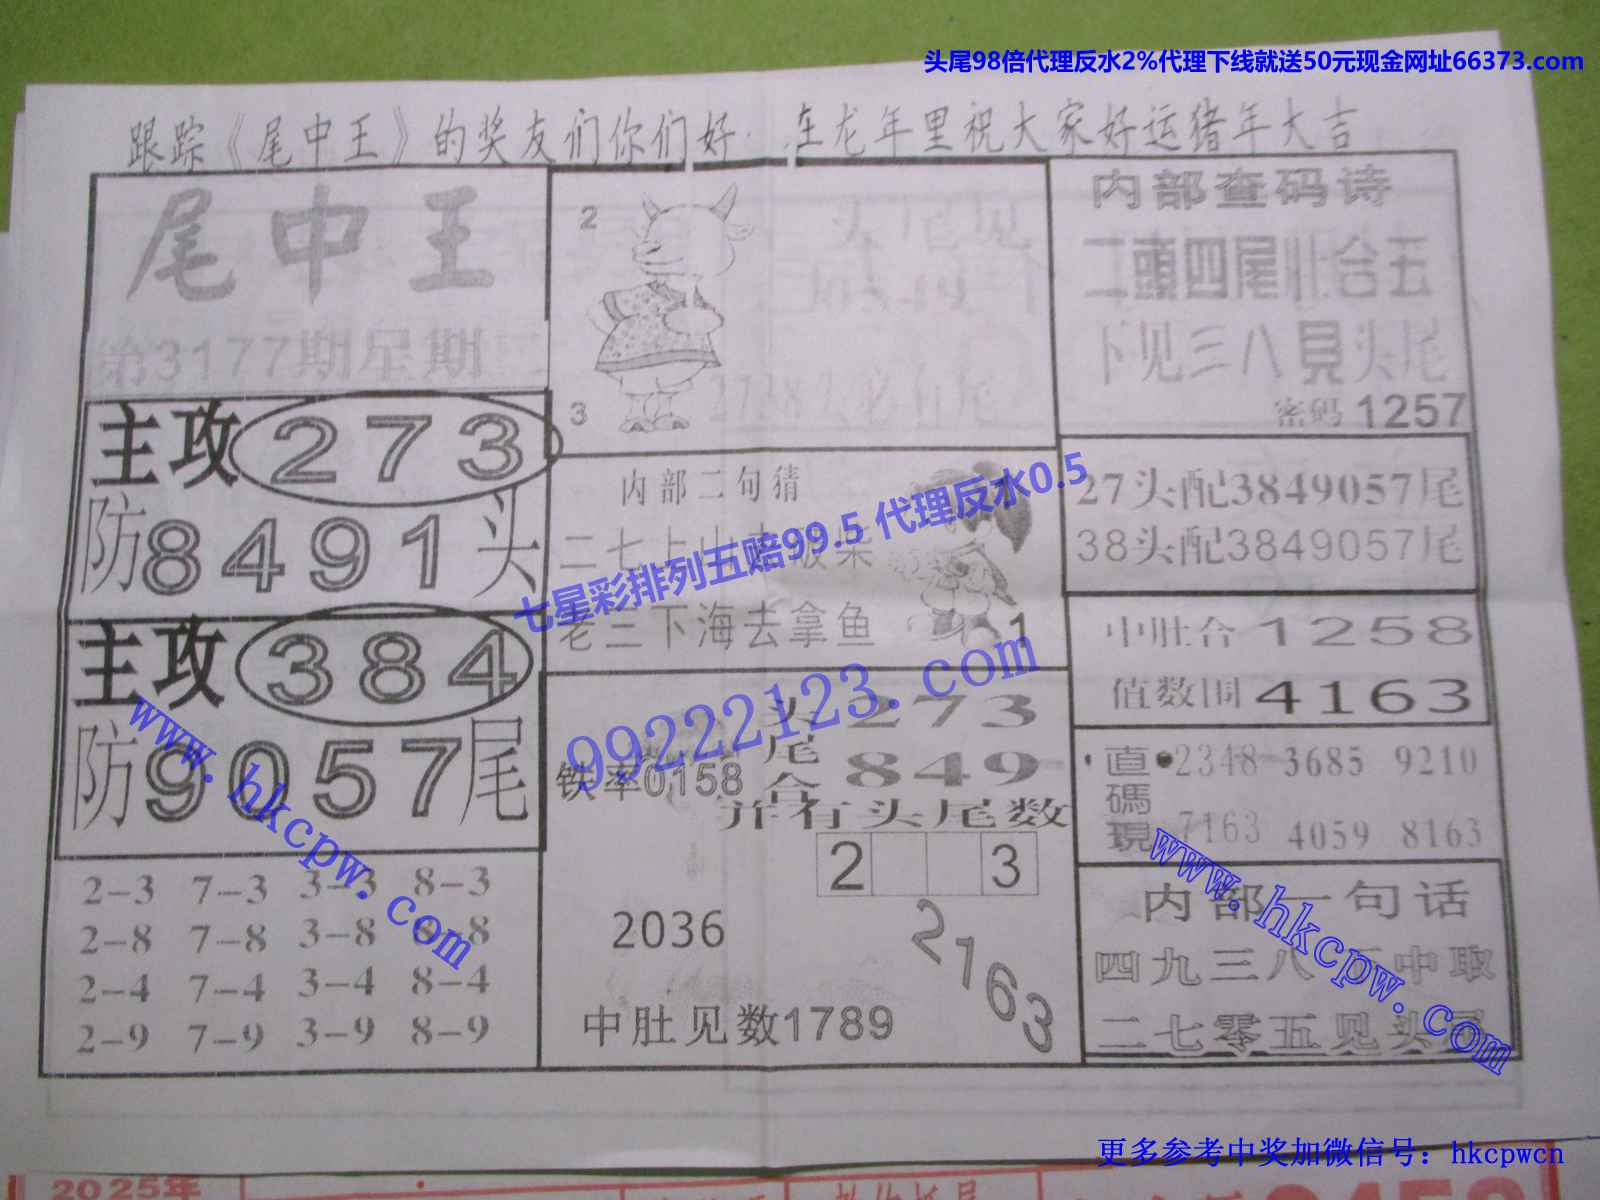 头尾98倍代理反水2%代理下线就送50元现金网址66373.com
跟踪《尾中王》的奖友们你们好 在龙年里祝大家好运猪年大吉
尾中王
第3177期星期二
主攻273
防8491头
主攻384
防9057尾
2-3 7-3 3-3 8-3
2-8 7-8 3-8 8-8
2-4 7-4 3-4 8-4
2-9 7-9 3-9 8-9
2
3
内部二句猜
二七上山去砍柴
老三下海去拿鱼
1
头尾合
273
849
铁率0158
并有头尾数
2 3
2036
2163
中肚见数1789
内部查码诗
二頭四尾肚合五
下见三八見头尾
密码1257
27头配3849057尾
38头配3849057尾
中肚合1258
值数围4163
直碼現
2348 3685 9210
7163 4059 8163
内部一句话
四九三八 中取
二七零五见头尾
七星彩排列五赔99.5 代理反水0.5
99222123.com
www.hkcpw.com
www.hkcpw.com
更多参考中奖加微信号：hkcpwcn
2025年